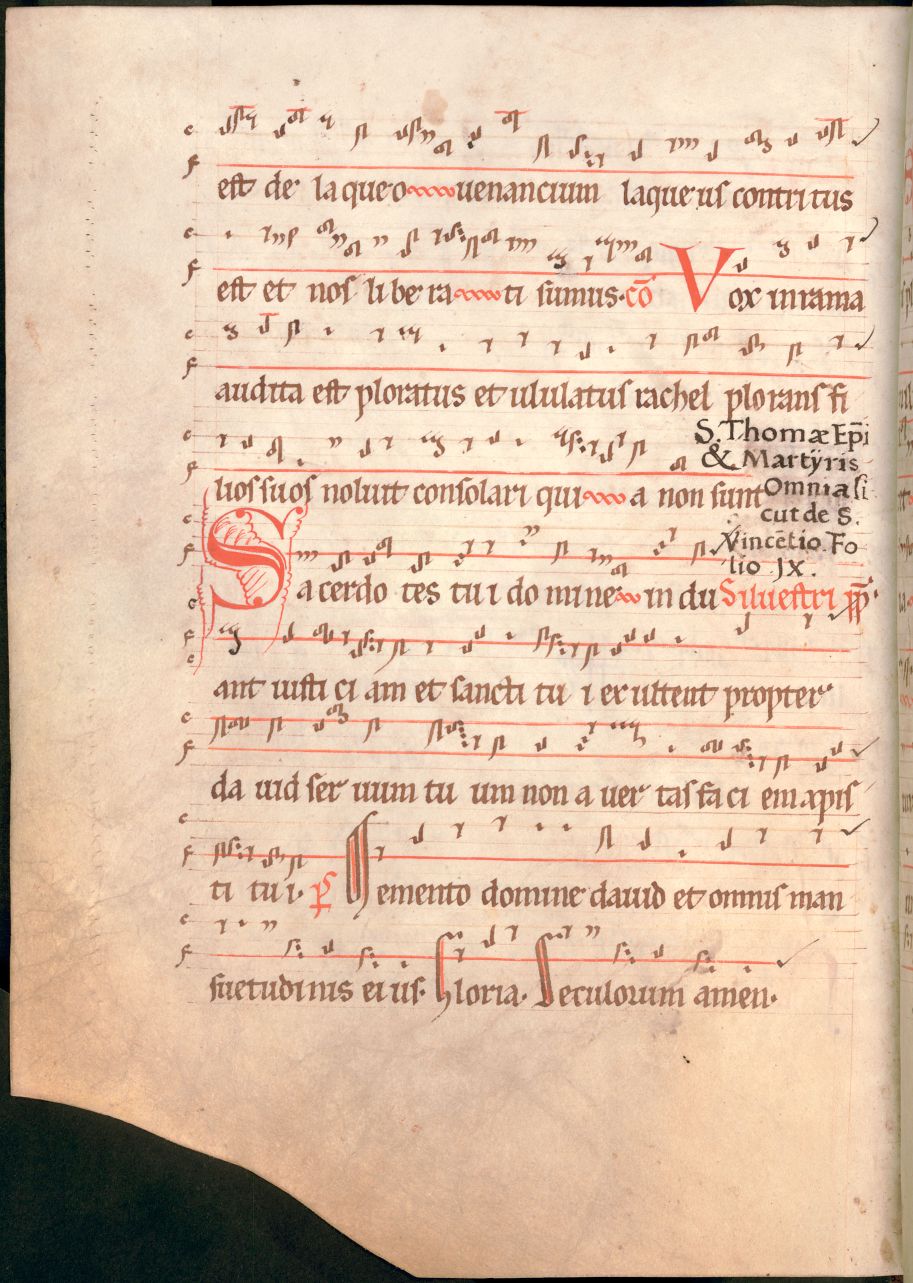 est de laqueo uenancium laqueus contritus
est et nos libera ti sumus. cō Vox in rama
audita est ploratus et ululatus rachel plorans fi
lios suos noluit consolari qui a non sunt
S. Thomæ Ep̄i
& Martÿris
Omnia si
cut de S.
Vincētio. Fo
lio IX.
Sacerdo tes tu i do mine in du Siluestri pp̄.
ant iusti ci am et sancti tu i exultent propter
da uid ser uum tu um non a uer tas fa ci em xpis
ti tu i. p̄s Memento domine dauid et omnis man
suetudinis ei us. Gloria. Seculorum amen.